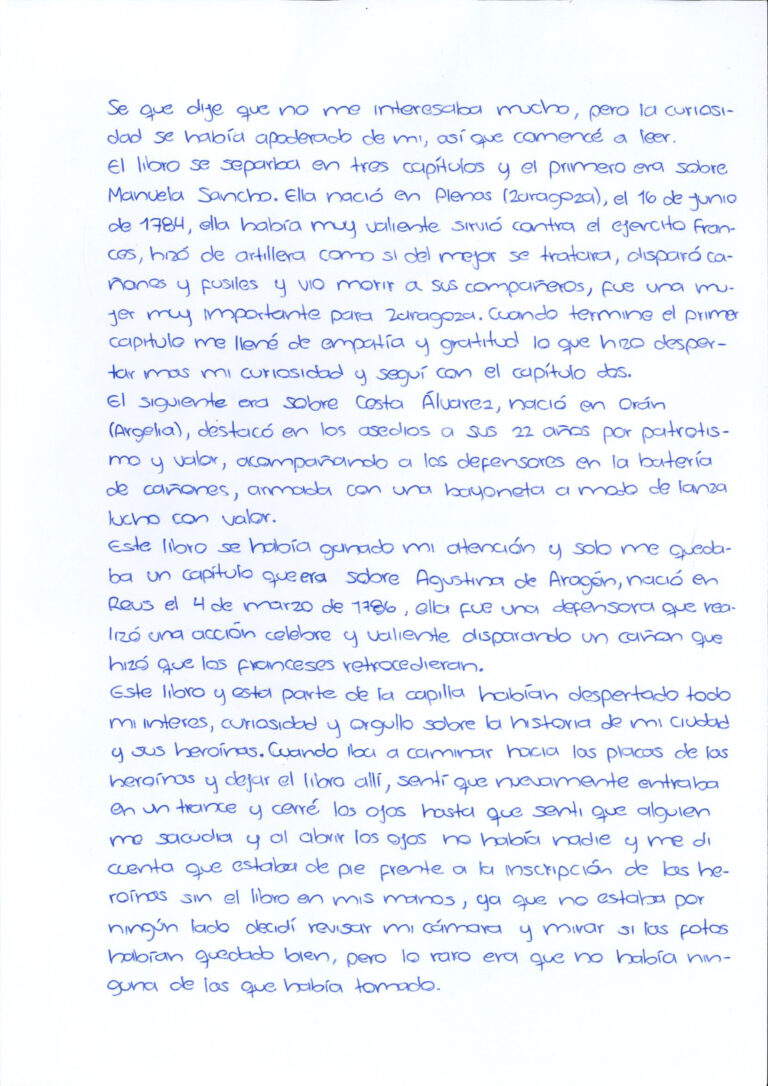 Se que dije que no me interesaba mucho, pero la curiosi-
dad se había apoderado de mi, así que comencé a leer.
El libro se separba en tres capítulos y el primero era sobre
Manuela Sancho. Ella nació en Plenas (Zaragoza), el 16 de junio
de 1784, ella había muy valiente sirvió contra el ejercito Fran-
ces, hizó de artillera como si del mejor se tratara, disparó ca-
ñones y fusiles y vio morir a sus compañeros, fue una mu-
jer muy importante para Zaragoza. Cuando termine el primer
capitulo me llené de empatía y gratitud lo que hizo desper-
tar mas mi curiosidad y seguí con el capítulo dos.
El siguiente era sobre Costa Álvarez, nació en Orán
(Argelia), destacó en los asedios a sus 22 años por patrotis-
mo y valor, acompañando a los defensores en la batería
de cañones, armada con una bayoneta a modo de lanza
lucho con valor.
Este libro se había ganado mi atención y solo me queda-
ba un capítulo que era sobre Agustina de Aragón, nació en
Reus el 4 de marzo de 1786, ella fue una defensora que rea-
lizó una acción celebre y valiente disparando un cañon que
hizó que los franceses retrocedieran.
Este libro y esta parte de la capilla habían despertado todo
mi interes, curiosidad y orgullo sobre la historia de mi ciudad
y sus heroínas. Cuando iba a caminar hacia las placas de las
heroínas y dejar el libro allí, sentí que nuevamente entraba
en un trance y cerré los ojos hasta que senti que alguien
me sacudia y al abrir los ojos no había nadie y me di
cuenta que estaba de pie frente a la inscripción de las he-
roínas sin el libro en mis manos, ya que no estaba por
ningún lado decidí revisar mi cámara y mirar si las fotos
habían quedado bien, pero lo raro era que no había nin-
guna de las que había tomado.